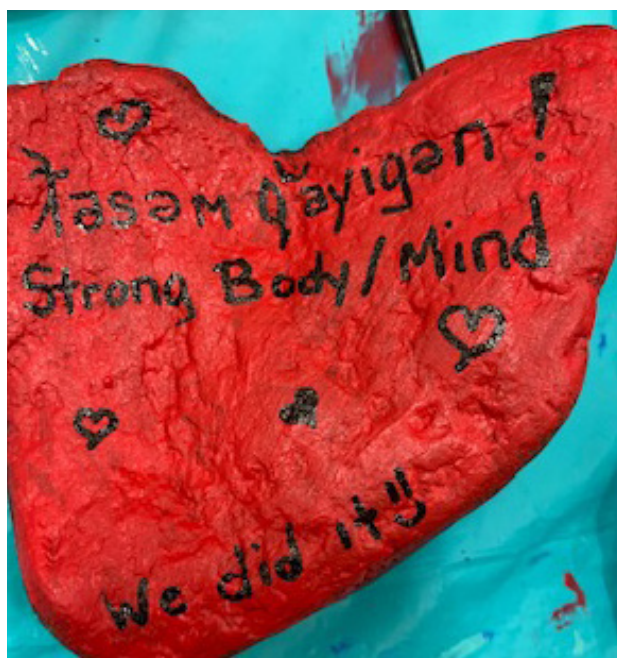 ƛ̌əsəm q̌ayigən !
Strong Body/Mind
We did it